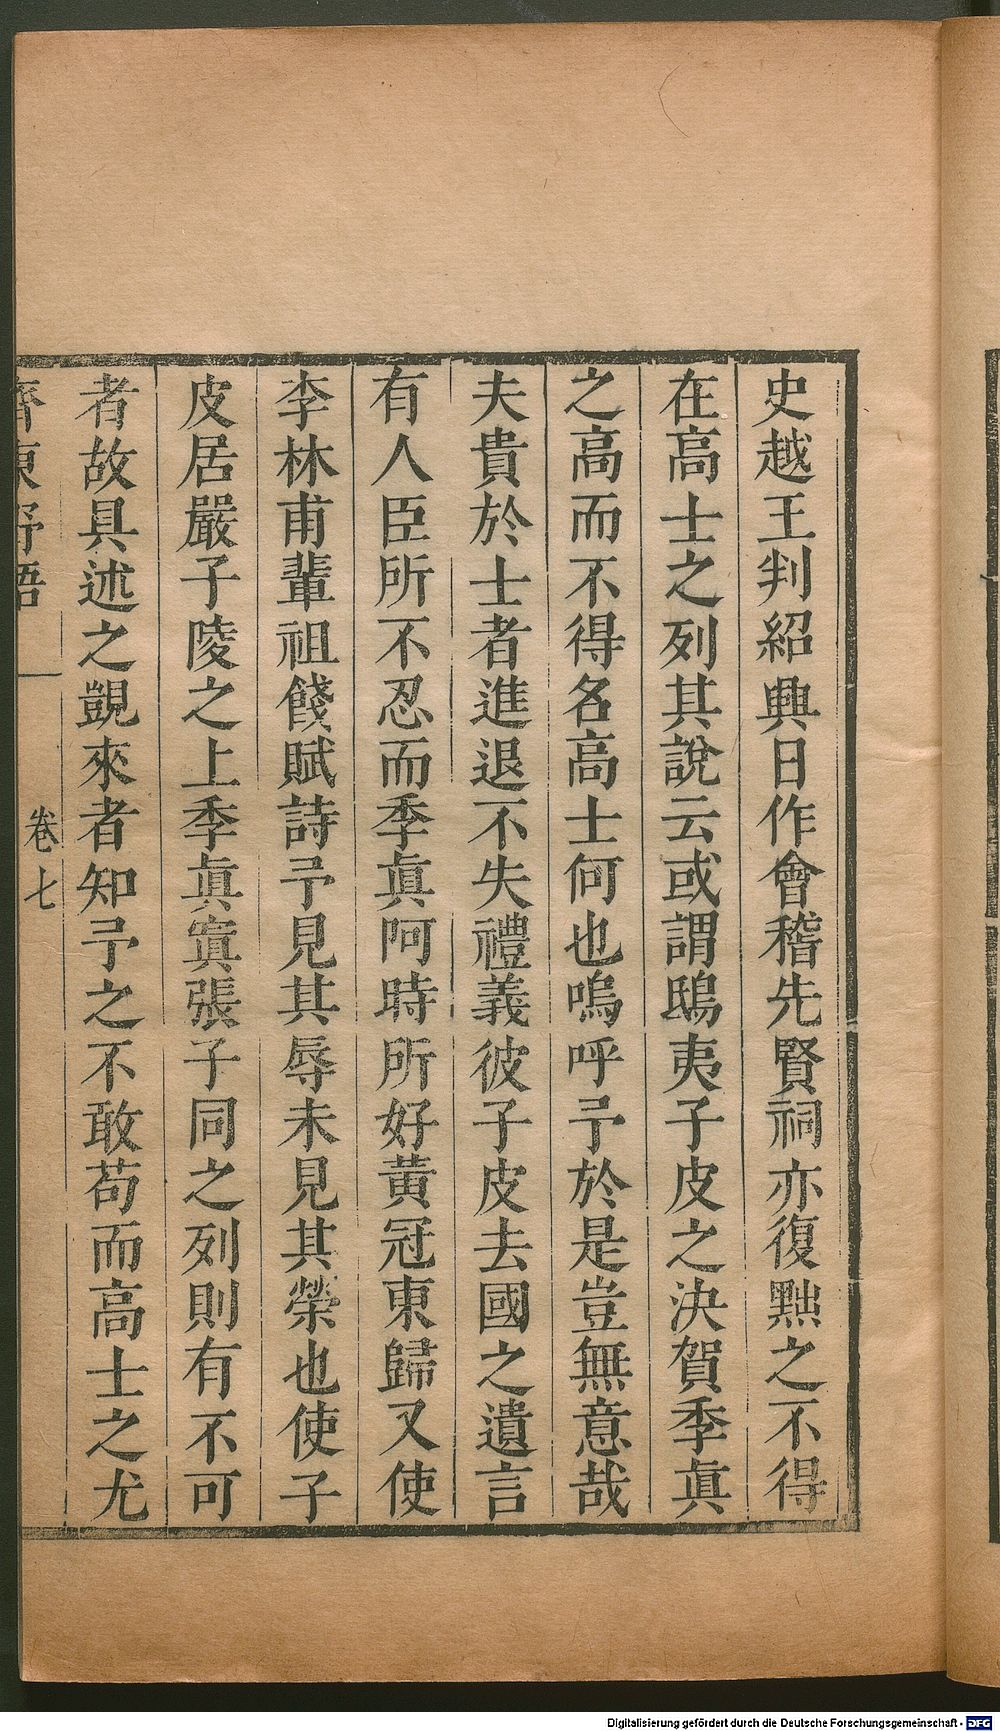 史越王判紹興日作會稽先賢祠亦復黜之不得
在高士之列其說云或謂鴟夷子皮之決賀季眞
之高而不得名高士何也嗚呼予於是豈無意哉
夫貴於士者進退不失禮義彼子皮去國之遺言
有人臣所不忍而季眞阿時所好黃冠東歸又使
李林甫輩祖餞賦詩予見其辱未見其榮也使子
皮居嚴子陵之上季眞寘張子同之列則有不可
者故具述之覬來者知予之不敢苟而高士之尤
齊東野語 卷七
Digitalisierung gefördert durch die Deutsche Forschungsgemeinschaft - DFG